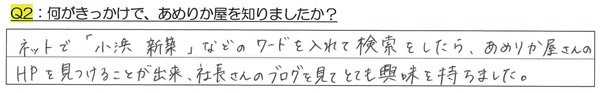 Q2：何がきっかけで、あめりか屋を知りましたか？
ネットで「小浜 新築」などのワードを入れて検索をしたら、あめりか屋さんの
HPを見つけることが出来、社長さんのブログを見てとても興味を持ちました。